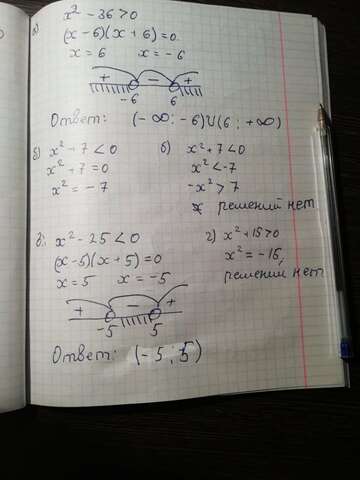 а) x² - 36 > 0
(x - 6)(x + 6) = 0
x = 6 x = - 6
+ - +
-6 6
Ответ: (- ∞; - 6)U(6; +∞)
б) x² + 7 < 0
x² + 7 = 0
x² = - 7
б) x² + 7 < 0
x² < -7
-x² > 7
решений нет
в) x² - 25 < 0
(x - 5)(x + 5) = 0
x = 5 x = -5
+ - +
-5 5
Ответ: (- 5; 5)
г) x² + 15 > 0
x² = - 15,
решений нет